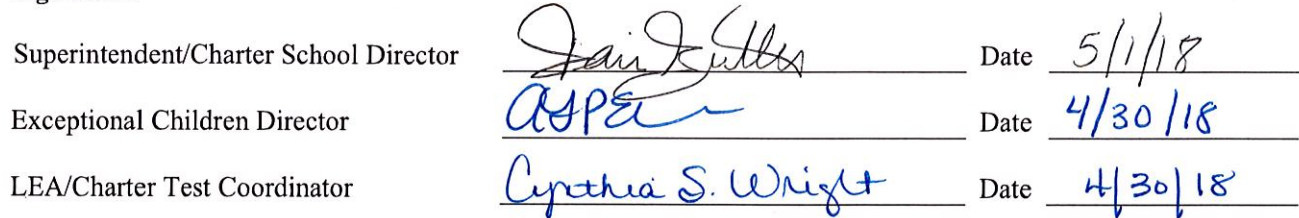 Superintendent/Charter School Director Date 5/1/18
Exceptional Children Director Date 4/30/18
LEA/Charter Test Coordinator Cynthia S. Wright Date 4/30/18